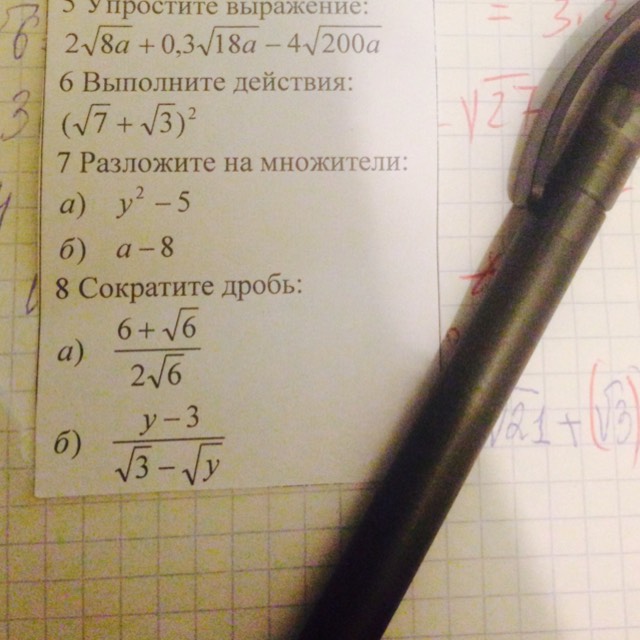 5 Упростите выражение:
2√8a + 0,3√18a − 4√200a
6 Выполните действия:
(√7 + √3)²
7 Разложите на множители:
а) y² − 5
б) a − 8
8 Сократите дробь:
а) (6 + √6)/(2√6)
б) (y − 3)/(√3 − √y)
= 3,
√2
√21 + (√3)